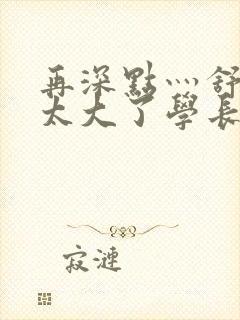 再深點灬舒
太大了學長
寂漣